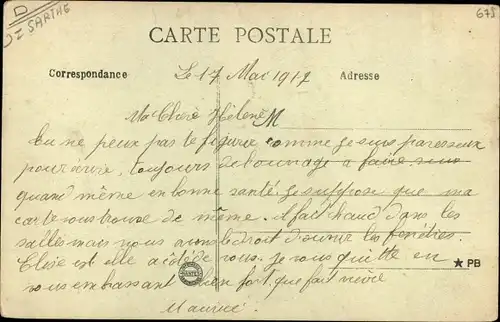 D
SARTHE
675
CARTE POSTALE
Correspondance
Le 17 Mai 1917
Adresse
Ma Chère Hélène
Tu ne peux pas te figurer comme je suis paresseux
pour écrire, toujours de l'ouvrage a faire suis
quand même en bonne santé. Je suppose que ma
carte vous trouve de même. il fait chaud dans les
salles mais nous avons le droit d'ouvrir les fenêtres.
Elise est elle a côté de vous. Je vous quitte en
vous embrassant bien fort que fait
Maurice
★ PB